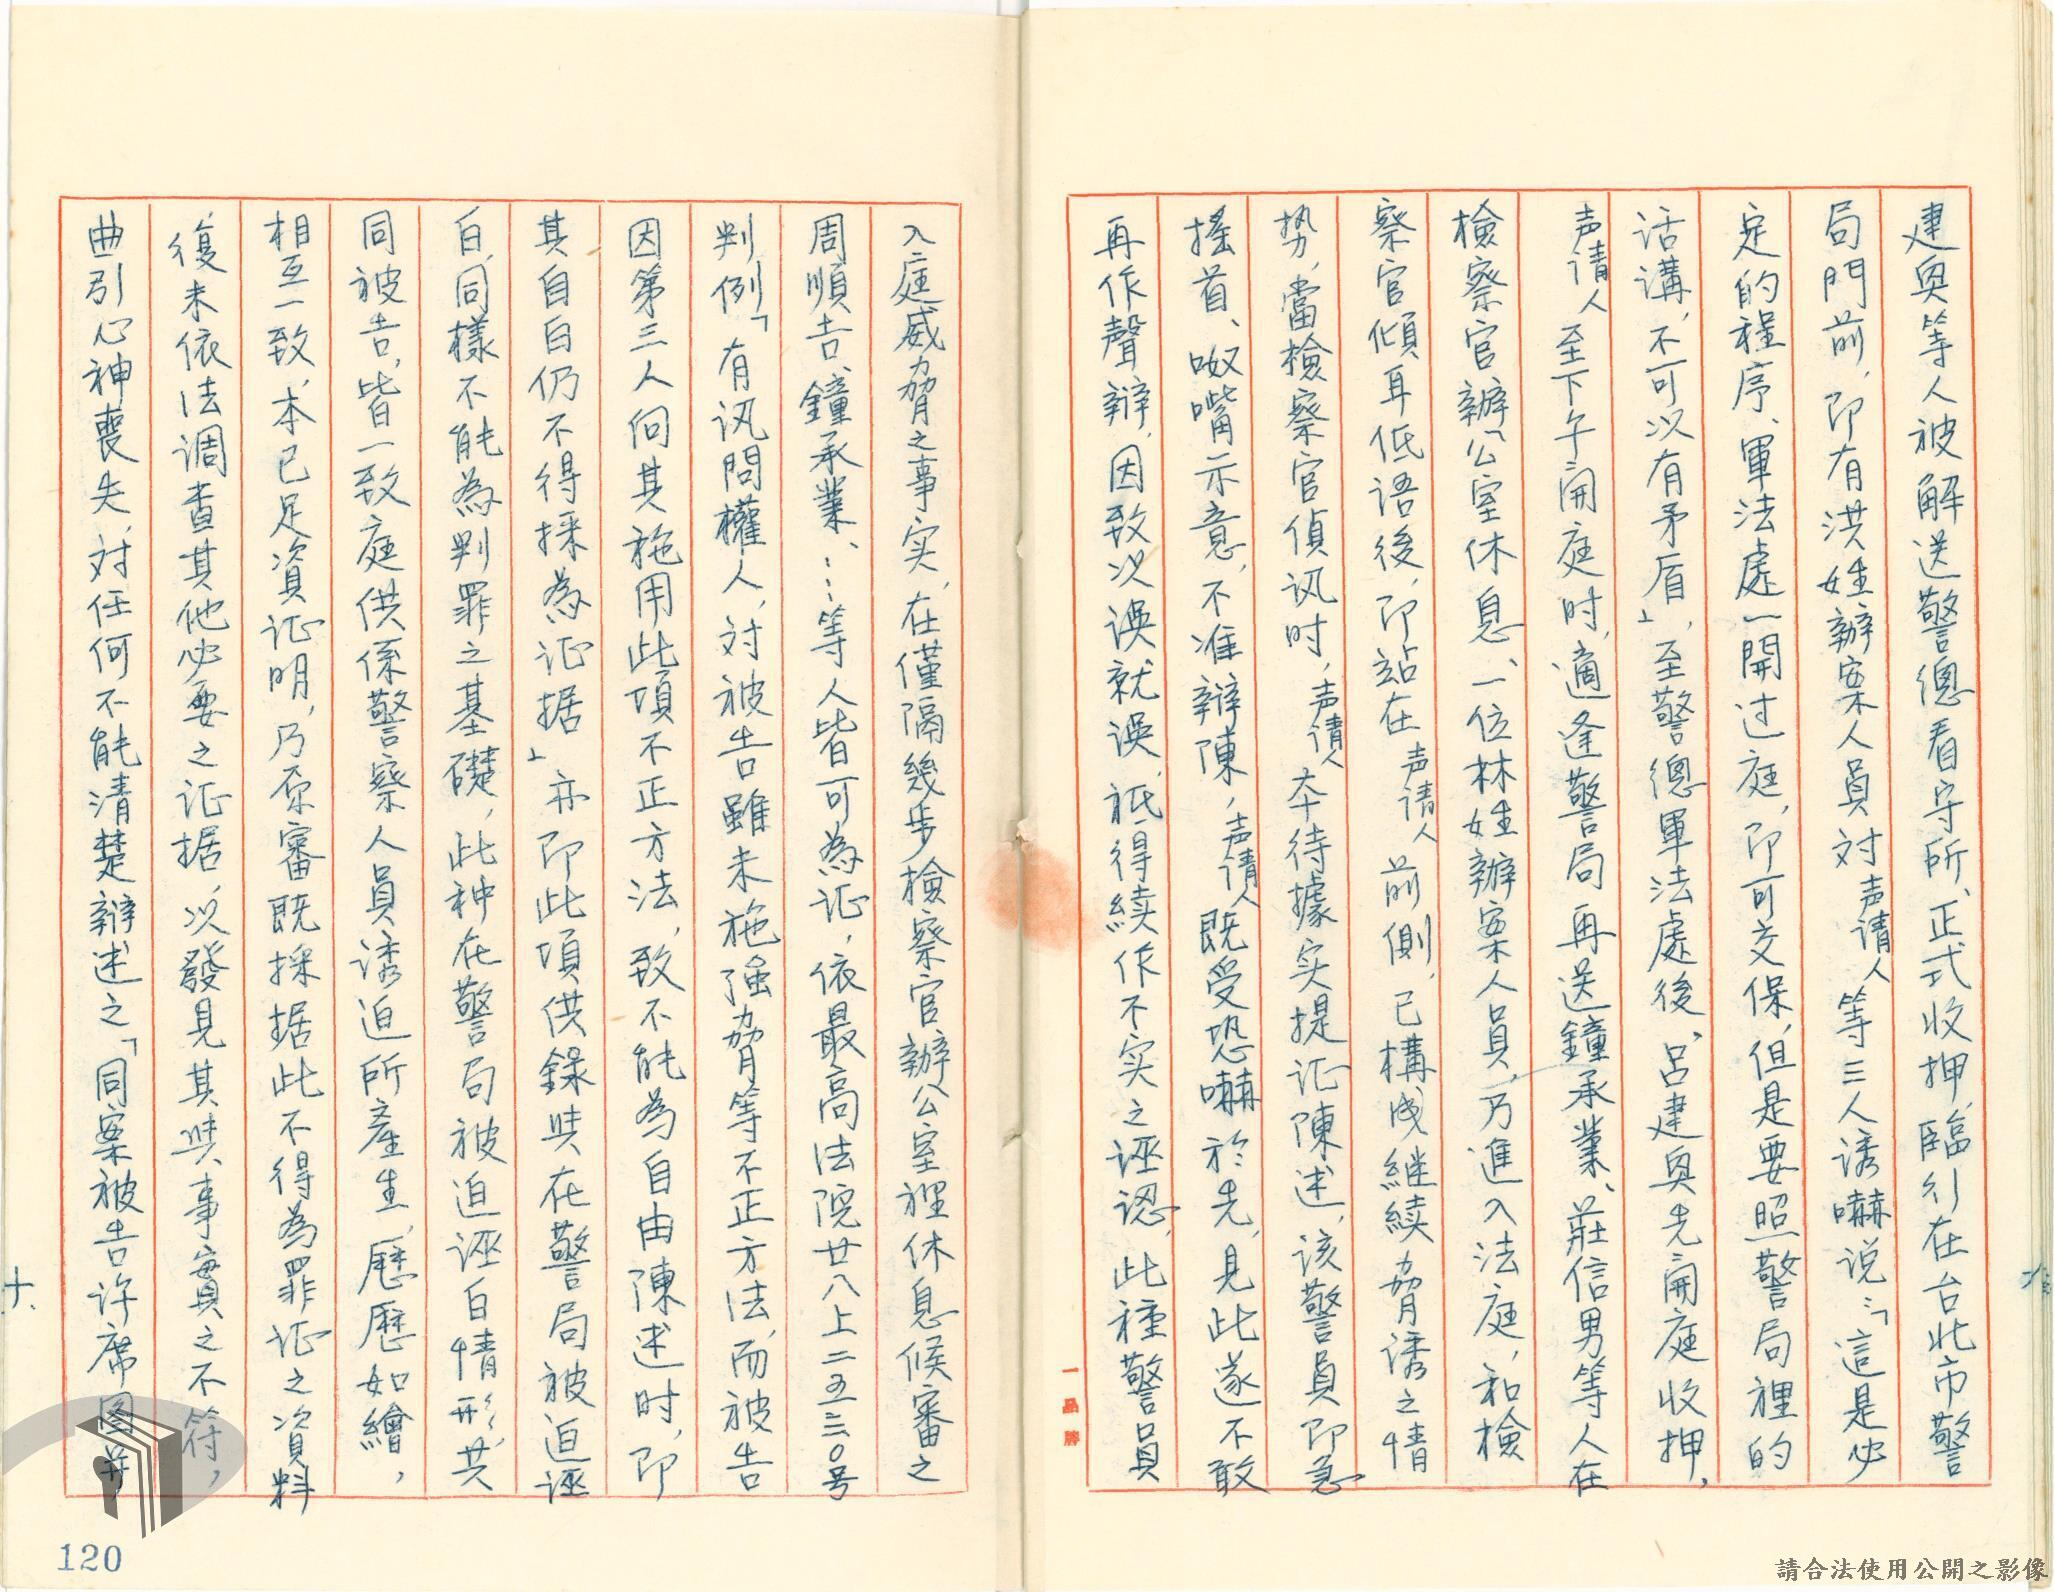 建奥等人被解送警總看守所、正式收押，臨行在台北市警
局門前，即有洪姓辦案人員对声请人等三人诱嚇说：「這是必
定的程序、軍法處一開过庭，即可交保，但是要照警局裡的
话講，不可以有矛盾」，至警總軍法處後、呂建奥先開庭收押，
声请人至下午開庭时，適逢警局再送鐘承業、莊信男等人在
檢察官辦公室休息、一位林姓辦案人員，乃進入法庭，和檢
察官傾耳低语後，即站在声请人前側，已構成继续脅诱之情
势，當檢察官偵讯时，声请人本待據实提证陳述，该警員即急
搖首、呶嘴示意，不准辯陳，声请人既受恐嚇於先，見此遂不敢
再作聲辯，因致以误就误，祗得续作不实之诬認，此種警員
一品牌
入庭威脅之事实，在僅隔幾步檢察官辦公室裡休息候審之
周順吉、鐘承業、……等人皆可為证，依最高法院廿八上二五三〇号
判例「有讯問權人，对被告雖未施強脅等不正方法，而被告
因第三人向其施用此項不正方法，致不能為自由陳述时，即
其自白仍不得採為证据」亦即此項供錄與在警局被迫诬
白，同樣不能為判罪之基礎，此种在警局被迫诬白情形，共
同被告，皆一致庭供係警察人員诱迫所產生，歷歷如繪，
相互一致，本已足資证明，乃原審既採据此不得為罪证之資料
復未依法調查其他必要之证据，以發見其與事實之不符，
曲引心神喪失，对任何不能清楚辯述之「同案被告许席图并
十、
120
請合法使用公開之影像